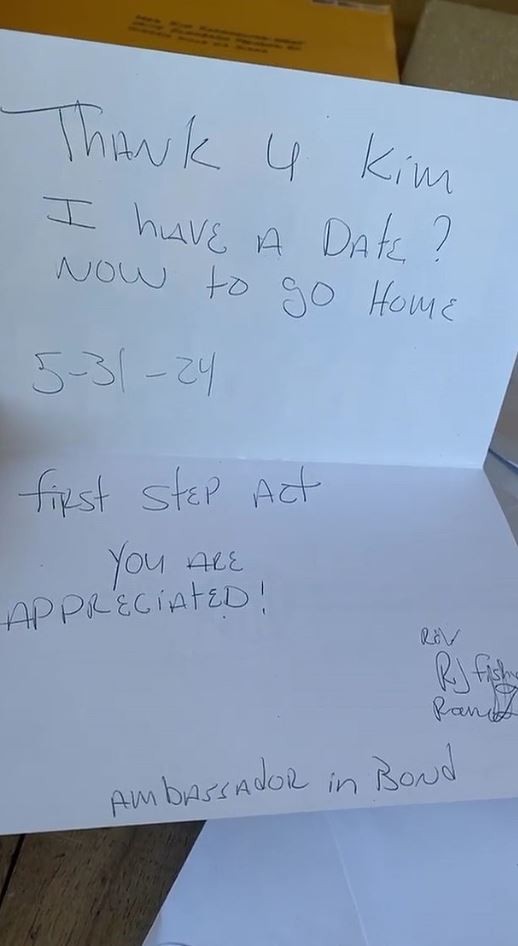 Thank U Kim
I have A Date?
Now to go Home
5-31-24
first Step Act
You Are
Appreciated!
Rev
RJ
Ambassador in Bond